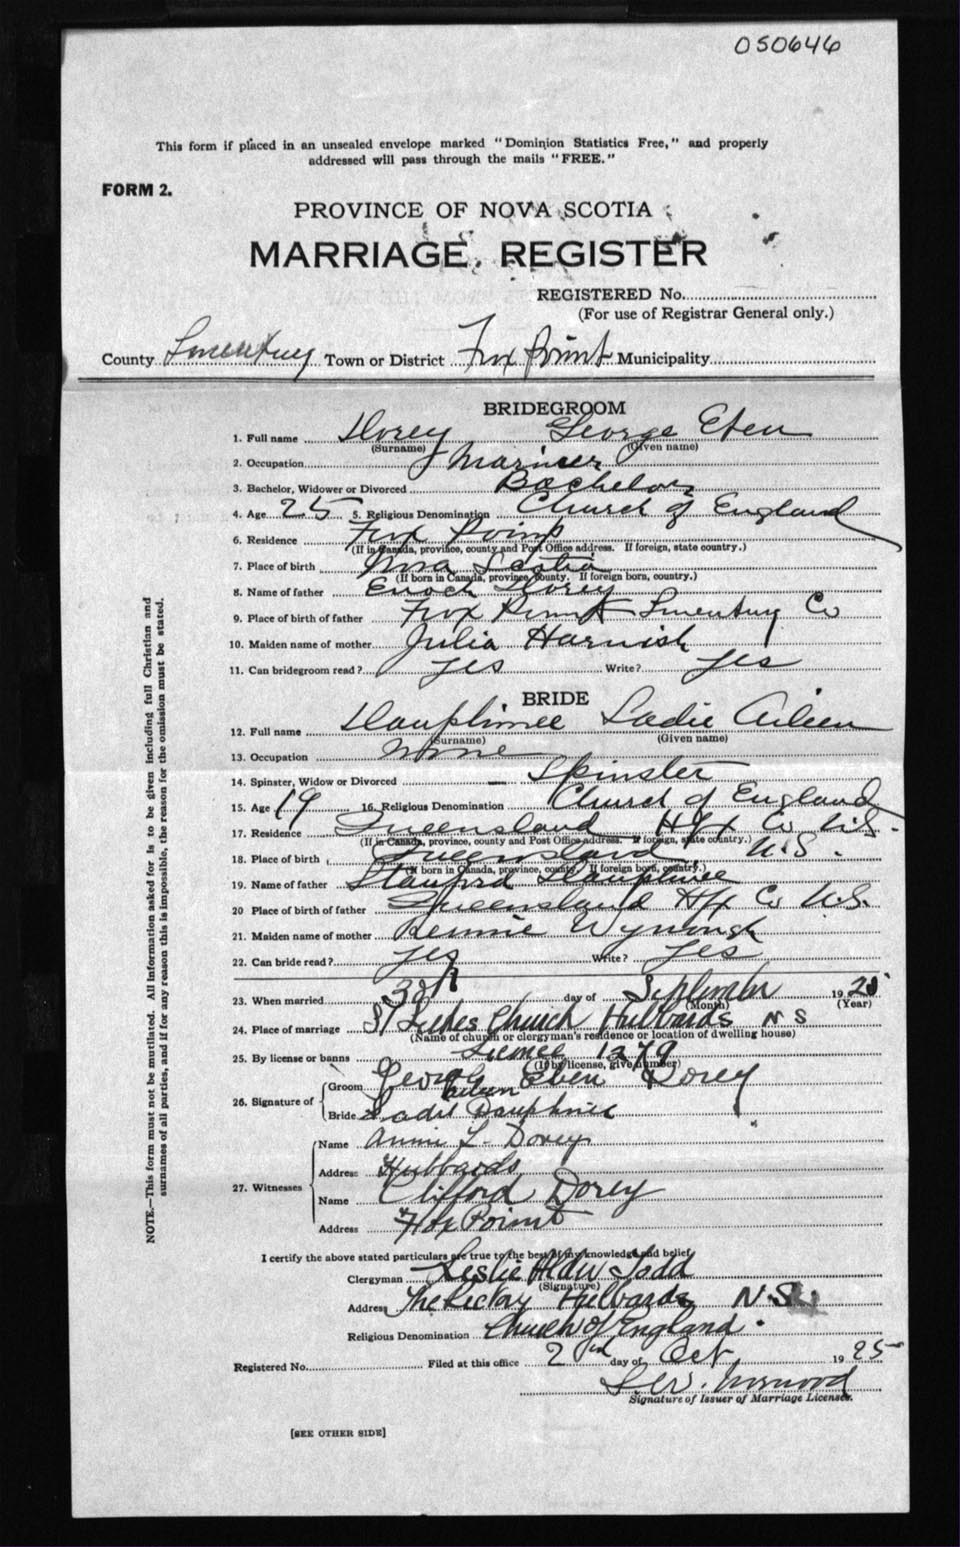 050646
This form if placed in an unsealed envelope marked "Dominion Statistics Free," and properly
addressed will pass through the mails "FREE."
FORM 2.
PROVINCE OF NOVA SCOTIA
MARRIAGE REGISTER
REGISTERED No.
(For use of Registrar General only.)
County Lunenburg Town or District Fox Point Municipality
BRIDEGROOM
1. Full name Dorey George Eben
(Surname) (Given name)
2. Occupation Mariner
3. Bachelor, Widower or Divorced Bachelor
4. Age 25 5. Religious Denomination Church of England
6. Residence Fox Point
(If in Canada, province, county and Post Office address. If foreign, state country.)
7. Place of birth Nova Scotia
(If born in Canada, province county. If foreign born, country.)
8. Name of father Enoch Dorey
9. Place of birth of father Fox Point Lunenburg Co
10. Maiden name of mother Julia Harnish
11. Can bridegroom read? yes Write? yes
BRIDE
12. Full name Dauphinee Sadie Aileen
(Surname) (Given name)
13. Occupation None
14. Spinster, Widow or Divorced – Spinster
15. Age 19 16. Religious Denomination Church of England
17. Residence Queensland Hfx Co N.S.
(If in Canada, province, county and Post Office address. If foreign, state country.)
18. Place of birth Queensland N.S.
(If born in Canada, province, county. If foreign born, country.)
19. Name of father Stanford Dauphinee
20 Place of birth of father Queensland Hfx Co N.S.
21. Maiden name of mother Wynongh
22. Can bride read? yes Write? yes
23. When married 30th day of September 1925
(Month) (Year)
24. Place of marriage St Lukes Church Hubbards N S
(Name of church or clergyman's residence or location of dwelling house)
25. By license or banns License 1279
(If by license, give number)
26. Signature of
Groom George Eben Dorey
Aileen
Bride Sadie Dauphinee
27. Witnesses
Name Annie L. Dorey
Address Hubbards
Name Clifford Dorey
Address Fox Point
I certify the above stated particulars are true to the best of my knowledge and belief
Clergyman Leslie Todd
(Signature)
Address The Rectory Hubbards N.S.
Religious Denomination Church of England.
Registered No. Filed at this office 2nd day of Oct 1925
Signature of Issuer of Marriage Licenses.
[SEE OTHER SIDE]
NOTE.—This form must not be mutilated. All information asked for is to be given including full Christian and
surnames of all parties, and if for any reason this is impossible, the reason for the omission must be stated.